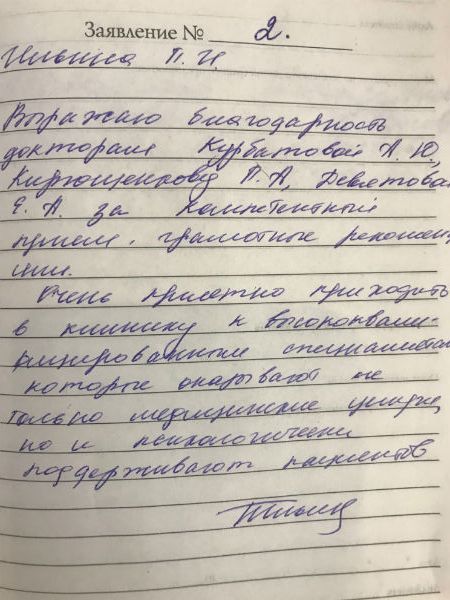 Заявление № 2.
Ильина П. И.
Выражаю благодарность
докторам Курбатовой А. Ю,
Кирющенкову П. А, Девлетовой
Е. А. за компетентный
прием, грамотные рекомен-
ции.
Очень приятно приходить
в клинику к высококвали-
фицированным специалистам
которые оказывают не
только медицинские
но и психологически
поддерживают пациентов